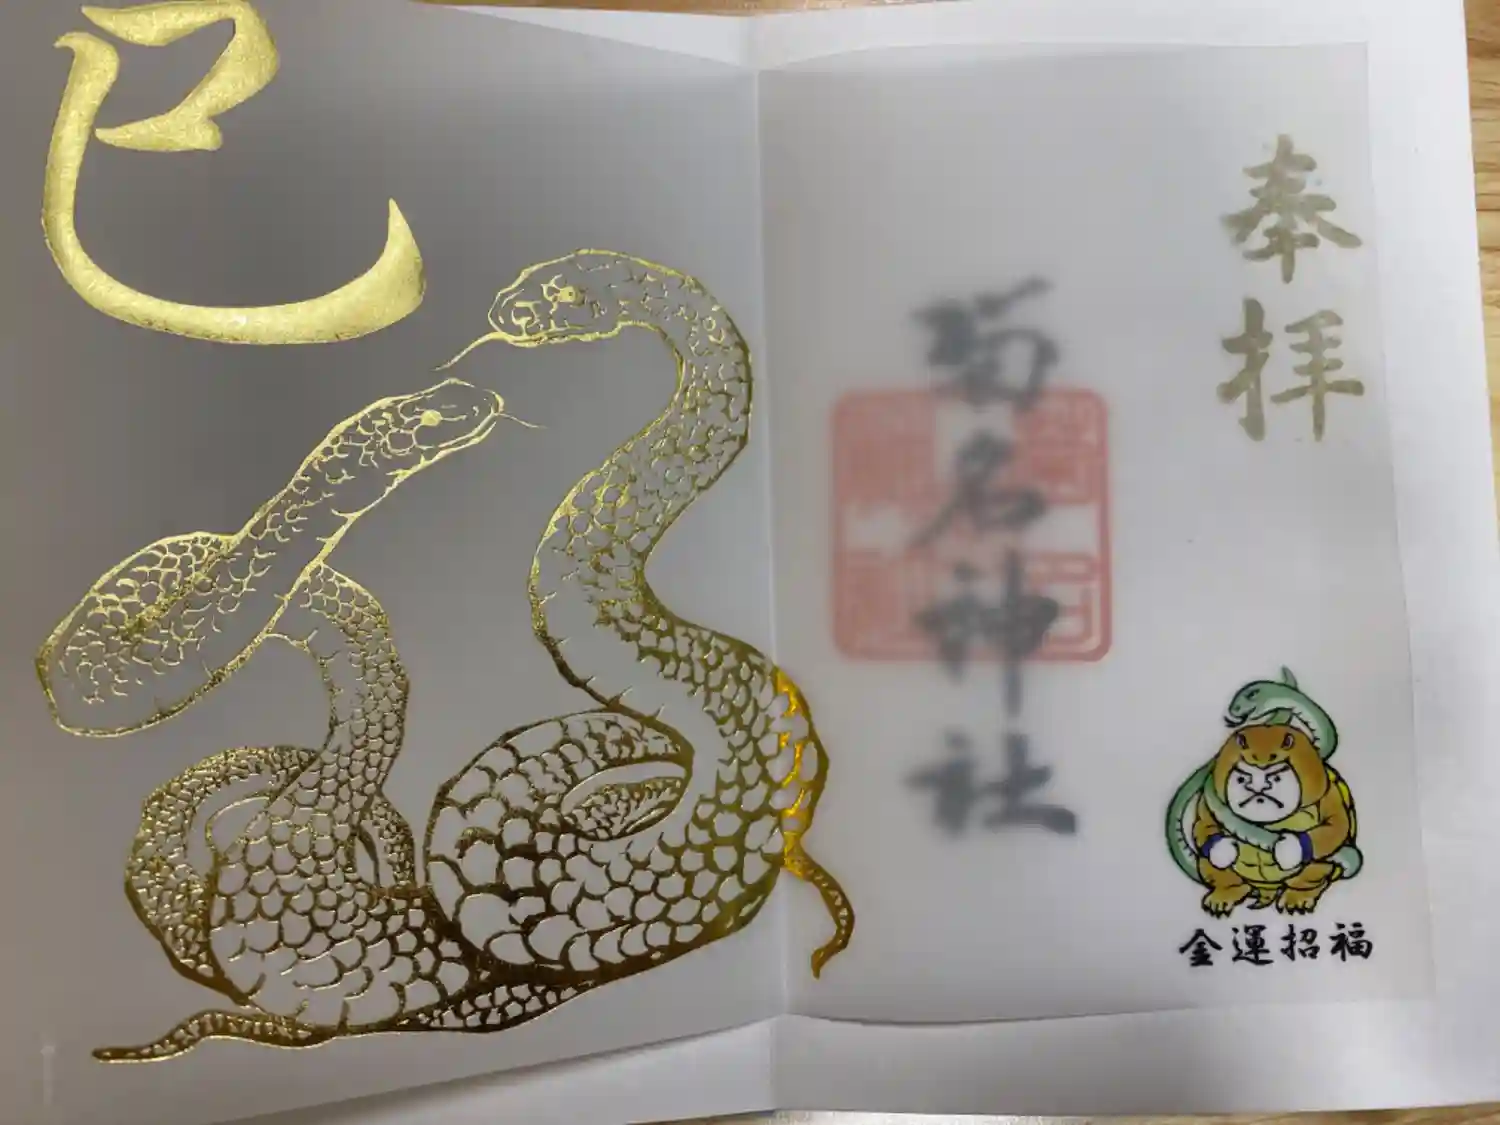 巳
奉拝
菊名神社
金運招福